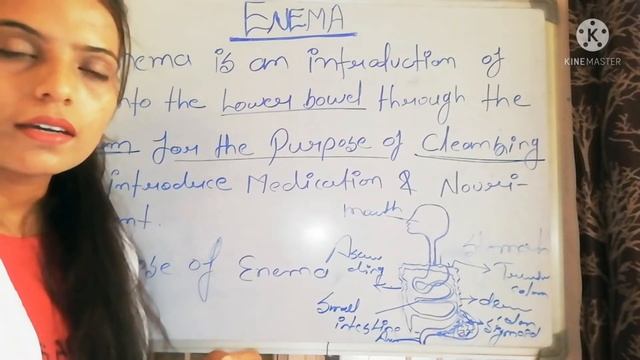 ENEMA
nema is an introduction of
nto the Lower bowel through the
m for the Purpose of Cleanbing
introduce Medication & Nouri-
nt.
se of Enema
mouth
Stomach
Ascen
ding
Small
intestine
colon
Sigmoid
K
KINEMASTER